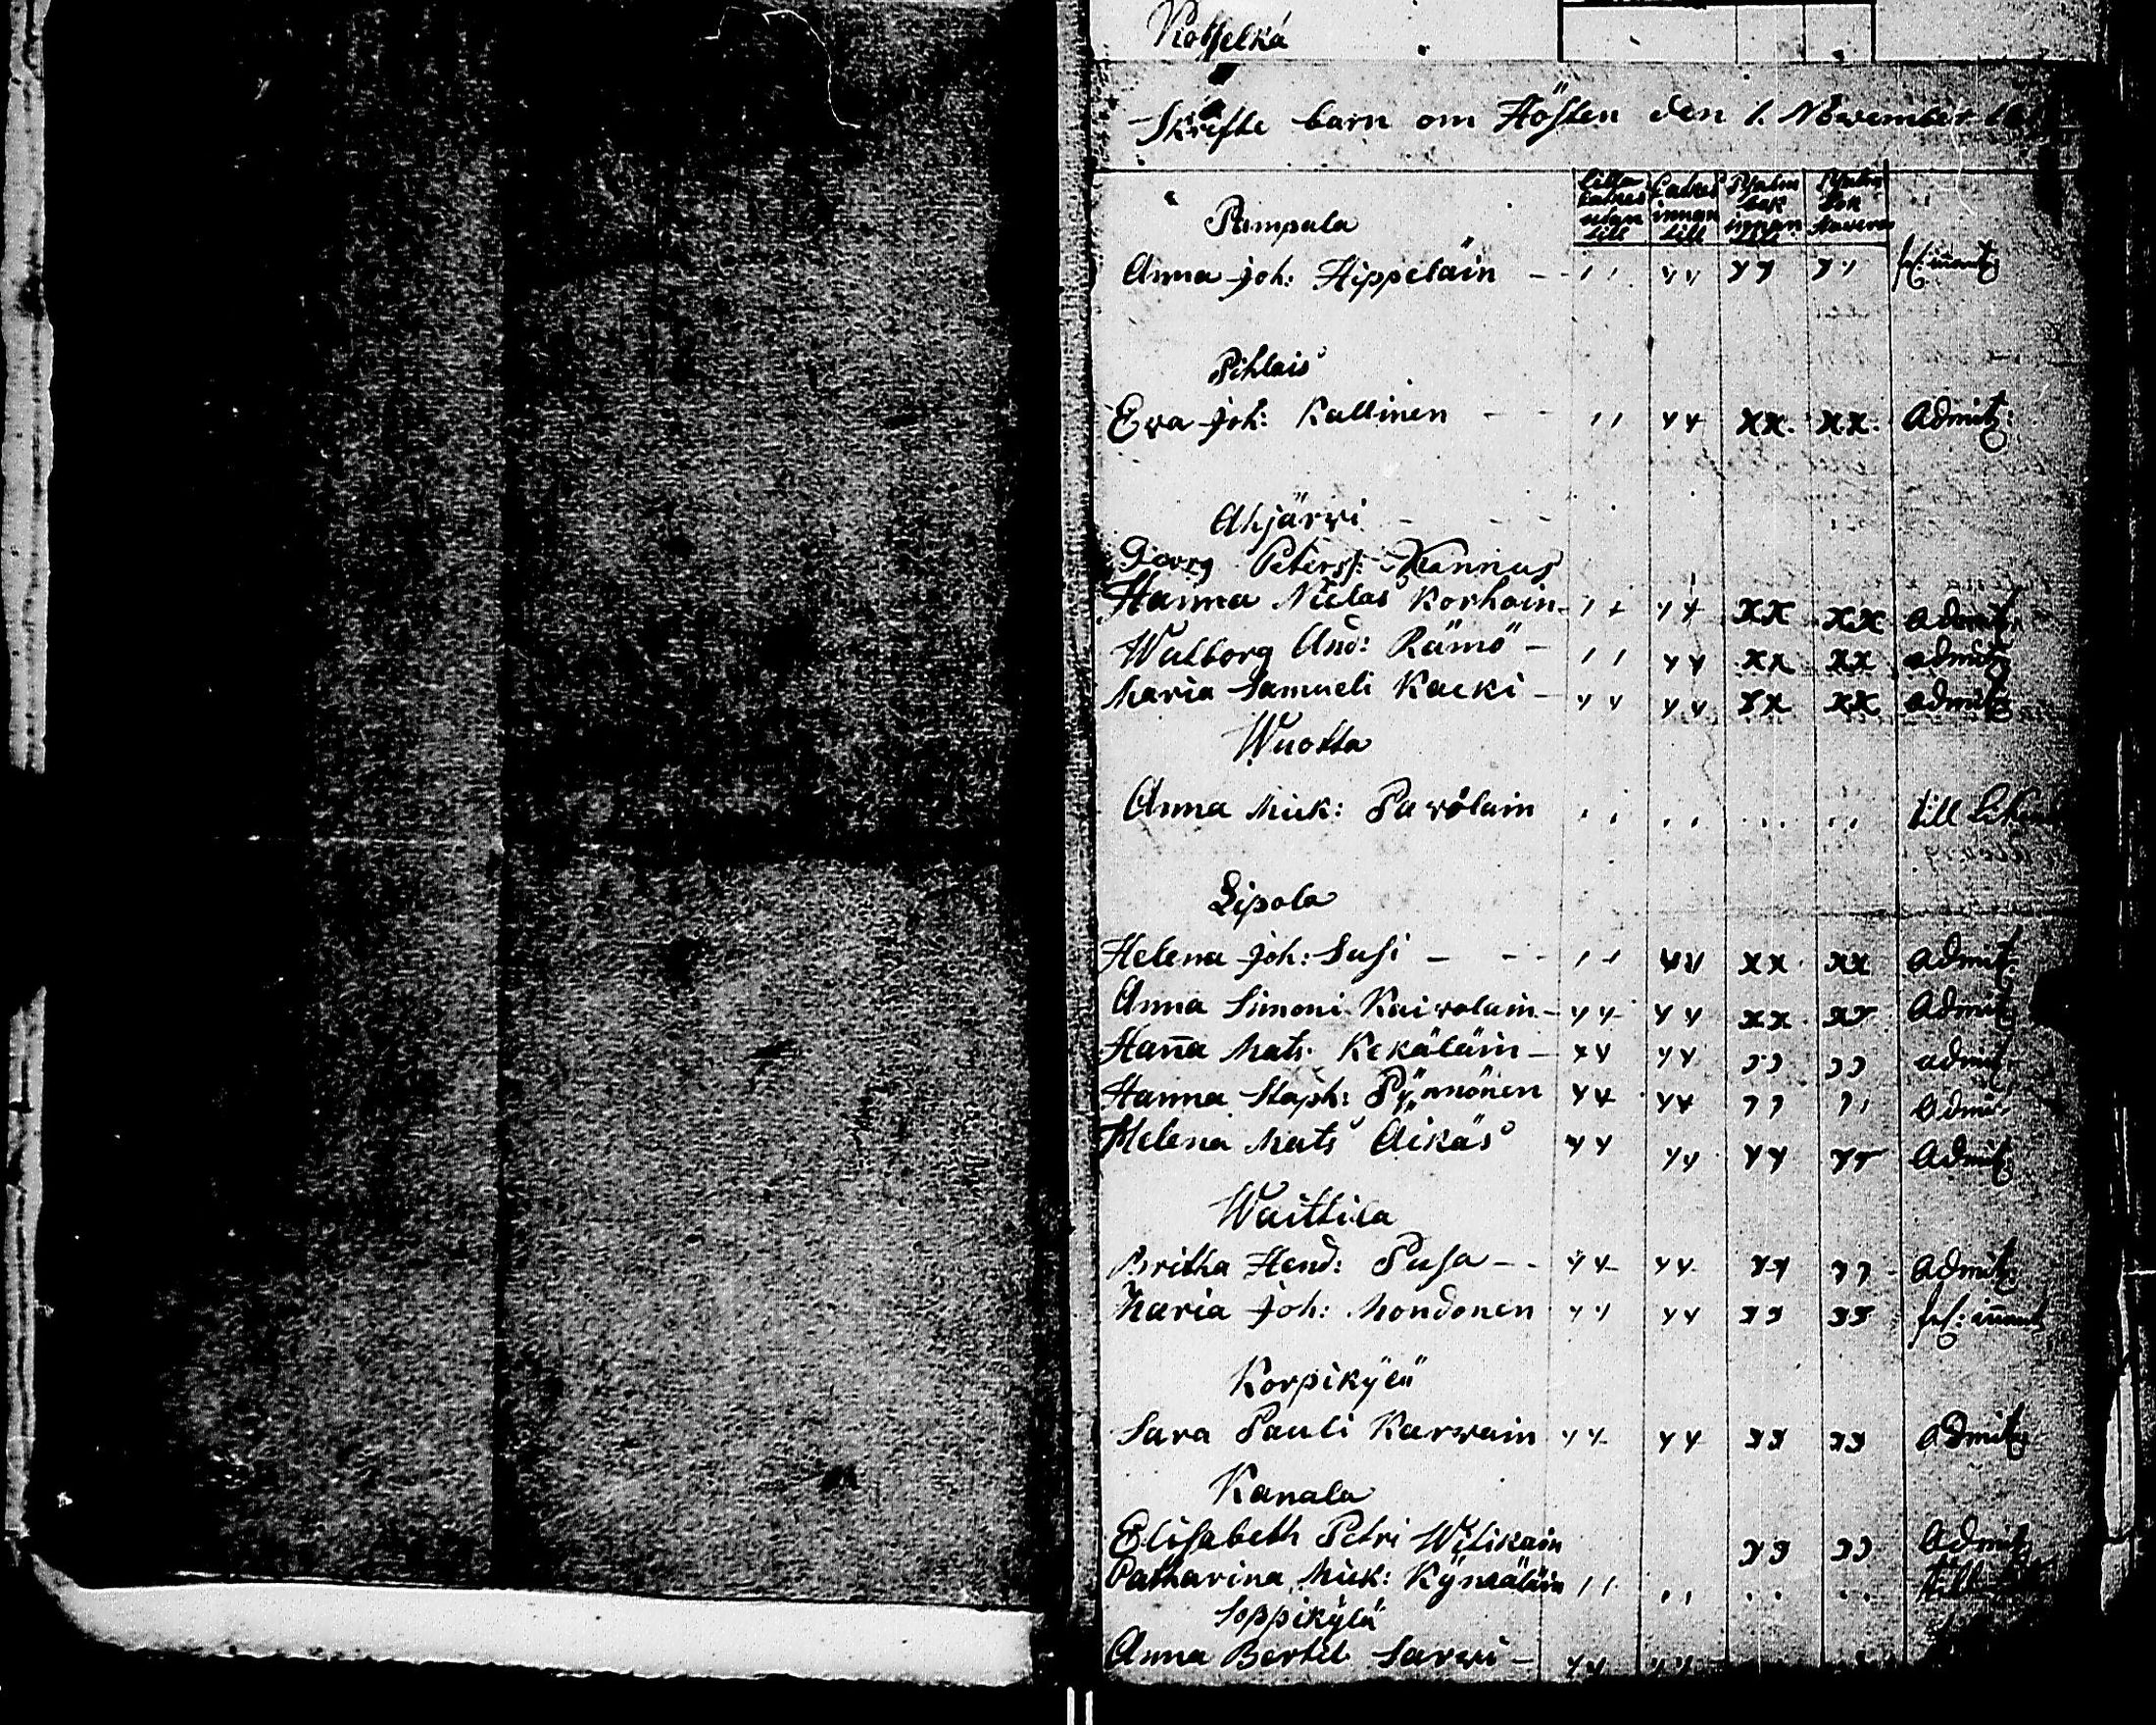 Kosselkä
Skrifte barn om Hösten den 1. November
Lilla Catkes utan till
Catkes innan till
Psalm bok innan till
Psalm bok
Pampala
Anna Joh: Hippeläin - - ı ı yy yy yı
Pihlais
Eva Joh: Kallinen - - ı ı yy xx. xx. Admitt:
Ahjärvi
Georg Peterss: Hannus
Hanna Niclas Korhoin - yy xx xx Admitt
Walborg And: Rämö - ı ı yy xx xx admitt
Maria Samueli Kacki - yy yy yx xx admitt
Wuotta
Anna Mick: Pavolain ı ı ı ı ı ı ı ı till
Lipola
Helena Joh: Susi - - - ı ı yy xx xx Admitt
Anna Simoni Kaivolain - yy yy xx xy Admitt
Hana Mats Kekäläin - xy yy ıı ıı admit
Hanna Staph: Pÿnnönen yy yy ıı ıı Admit
Helena Mats Aikäs yy yy yy yy Admitt
Waittila
Britha Hend: Pusa - - yy yy yy yy Admitt:
Maria Joh: Mondonen yy yy yy yy
Korpikÿlä
Sara Pauli Karvain yy yy xx xx Admitt
Kanala
Elisabeth Petri Wilikain yy yy Admitt
Catharina Mick: Kÿmäläin ı ı ı ı ı ı ı ı till
Soppikÿlä
Anna Bertel Sarvi - yy yy